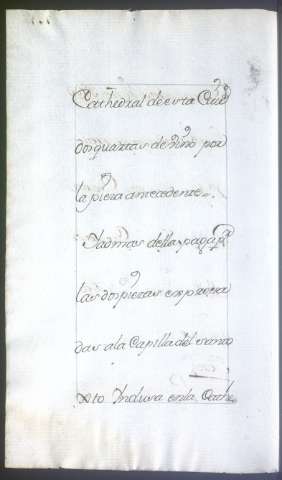 Cathedral de esta Ciud
dos quartas de vino por
la pieza antecedente.
Y ademas de ella, paga pr
las dos piezas expresa
das a la Capilla del
Xpto Inclusa en la Cathe